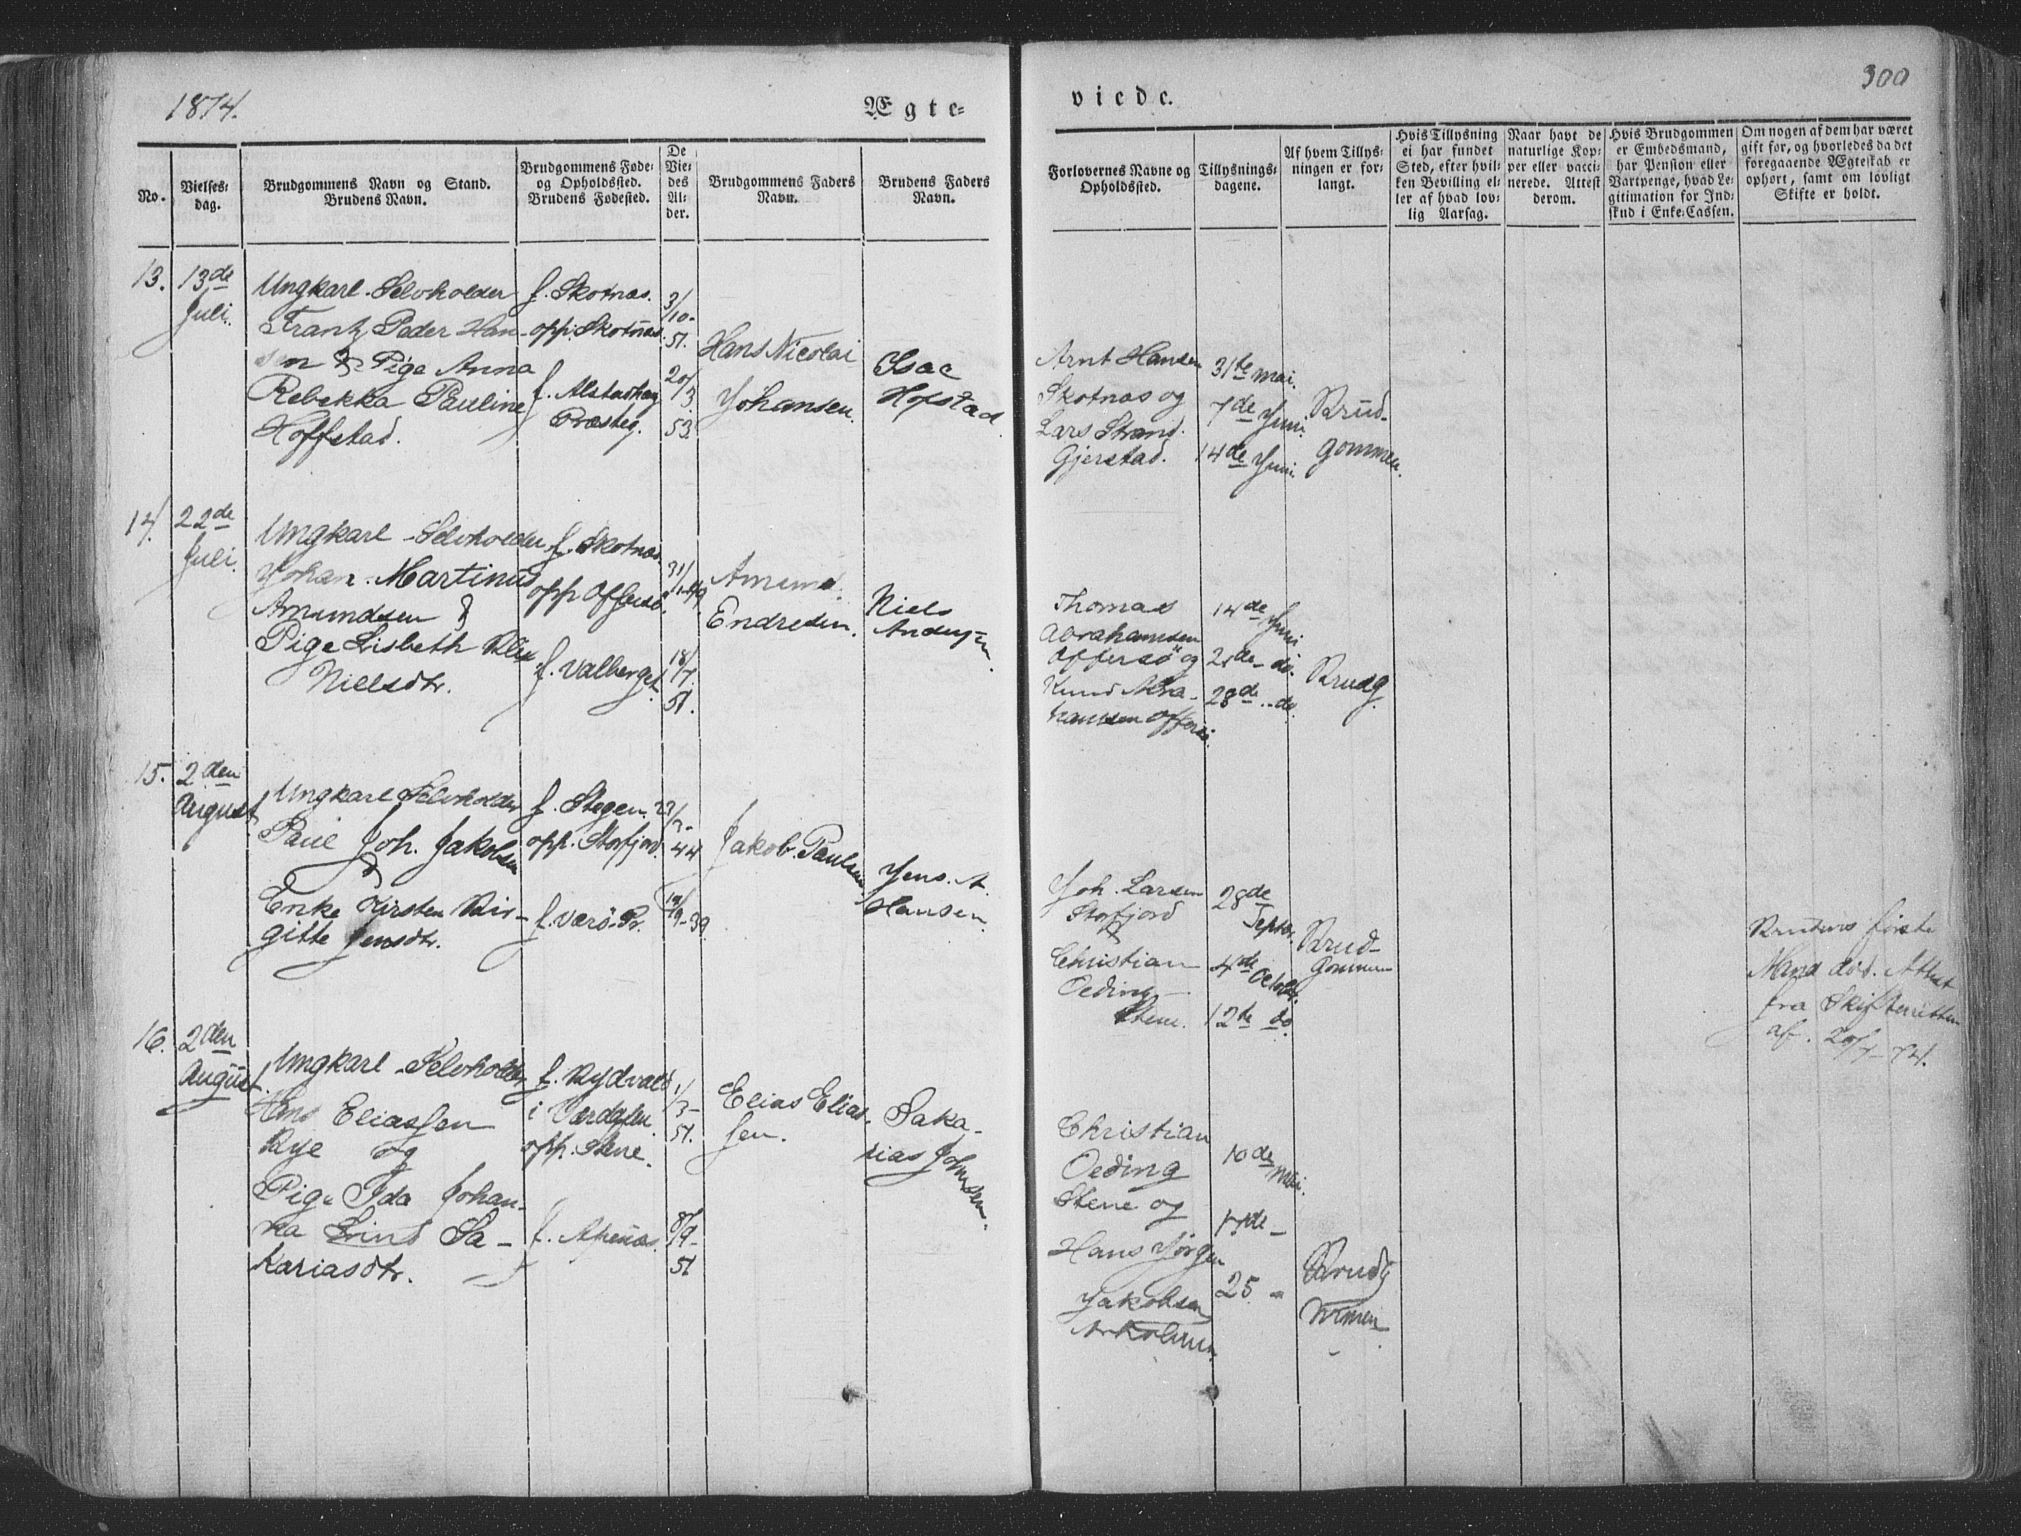 1874.
Ægte=
viede.
300
No.
Vielses=
dag.
Brudgommens Navn og Stand.
Brudens Navn.
Brudgommens Føde=
og Opholdssted.
Brudens Fødested.
De
Vie=
des
Al=
der.
Brudgommens Faders
Navn.
Brudens Faders
Navn.
Forlovernes Navne og
Opholdssted.
Tillysnings=
dagene.
Af hvem Tillys=
ningen er for=
langt.
Hvis Tillysning
ei har fundet
Sted, efter hvil=
ken Bevilling el=
ler af hvad lov=
lig Aarsag.
Naar havt de
naturlige Kop=
per eller vacci=
nerede. Attest
derom.
Hvis Brudgommen
er Embedsmand,
har Pension eller
Vartpenge, hvad Le=
gitimation for Ind=
skud i Enke=Cassen.
Om nogen af dem har været
gift før, og hvorledes da det
foregaaende Ægteskab er
ophørt, samt om lovligt
Skifte er holdt.
13.
13de
Juli.
Ungkarl Selvholder
Frantz Peder Han-
sen & Pige Anna
Rebekka Pauline
Hoffstad.
f. Skotnæs.
opp. Skotnæs.
f. Alstadhaug
Præsteg.
3/
10-
51.
20/
3.
53.
Hans Nicolai
Johansen.
Isac
Hofstad.
Arnt Hansen
Skotnæs og
Lars Strand.
Gjerstad.
31te mai.
7de Juni.
14de Juni.
Brud-
gommen.
14.
22de
Juli.
Ungkarl Selvholder
Johan Martinus
Amundsen &
Pige Lisbeth
Nielsdtr.
f. Skotnæs.
opp. Offersø.
f. Valberget
31/
1-49
18/
7.
51.
Amund
Endresen.
Niels
Andersen.
Thomas
Abrahamsen
Offersø og
Knud Abra-
hamsen Offersø.
14de Juni
21de - do.
28de - do.
Brudg.
15.
2den
August
Ungkarl Selvholder
Paul Joh. Jakobsen
&
Enke Kirsten Bir-
gitte Jensdtr.
f. Stegen
opp. Storfjord.
f. Værø Pr.
44
9-39
Jakob Paulsen
Jens A.
Hansen
Joh. Larsen
Storfjord
&
Christian
Oeding
Stene.
28de
Septbr.
4de October
12te do.
Brud-
gommen
Brudens første
Mand død. Attest
fra Skifteretten
af. 20/7-74.
16.
2den
August.
Ungkarl Selvholder
Eliassen
Rye og
Pige Ida Johan-
na Sa-
kariasdtr.
f.
i Værdalen.
opp. Stene.
f.
1/
3-
51.
8/
9-
51
Elias Elias-
sen.
Saka-
rias Johnsen.
Christian
Oeding
Stene og
Hans Jørgen
Jakobsen
10de Mai.
17de -
25 -
Brudg